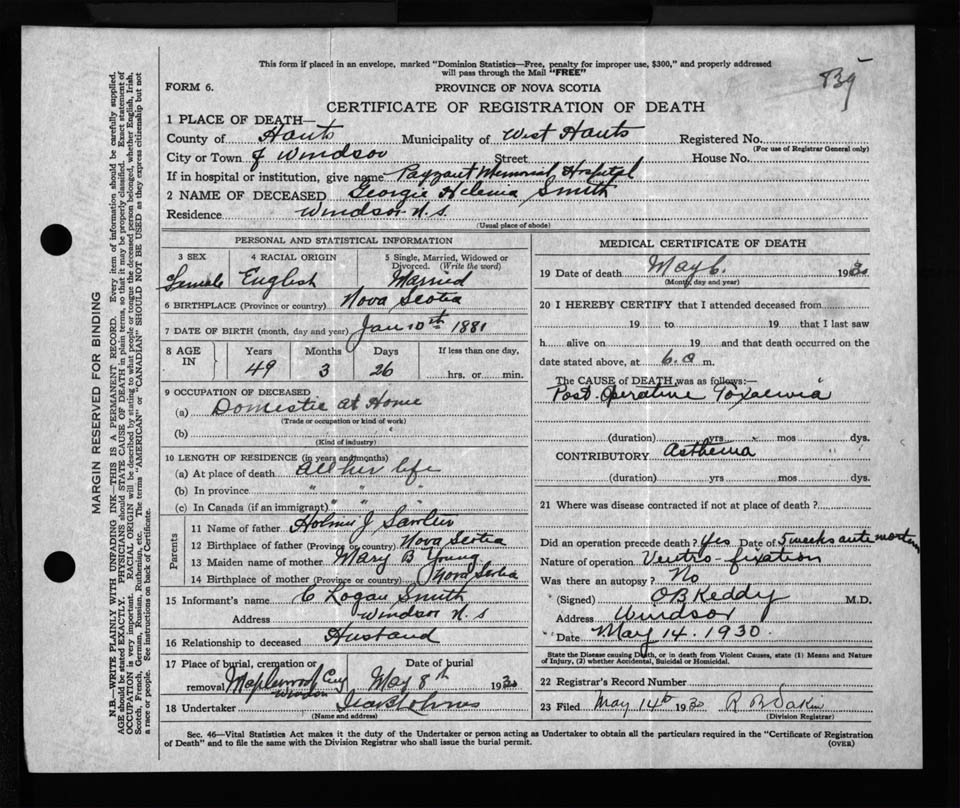 This form if placed in an envelope, marked "Dominion Statistics—Free, penalty for improper use, $300," and properly addressed
will pass through the Mail "FREE"
839
FORM 6.
PROVINCE OF NOVA SCOTIA
CERTIFICATE OF REGISTRATION OF DEATH
1 PLACE OF DEATH—
County of Hants Municipality of West Hants Registered No.
(For use of Registrar General only)
City or Town of Windsor Street House No.
If in hospital or institution, give name Payzant Memorial Hospital
2 NAME OF DECEASED Georgie Smith
Residence Windsor N.S.
(Usual place of abode)
PERSONAL AND STATISTICAL INFORMATION
3 SEX 4 RACIAL ORIGIN 5 Single, Married, Widowed or
Divorced. (Write the word)
Female English Married
6 BIRTHPLACE (Province or country) Nova Scotia
7 DATE OF BIRTH (month, day and year) Jan 10th 1881
8 AGE IN Years Months Days If less than one day,
49 3 26 hrs. or min.
9 OCCUPATION OF DECEASED
(a) Domestic at Home
(Trade or occupation or kind of work)
(b)
(Kind of industry)
10 LENGTH OF RESIDENCE (in years and months)
(a) At place of death all her life
(b) In province " " "
(c) In Canada (if an immigrant) " " "
Parents
11 Name of father J.
12 Birthplace of father (Province or country) Nova Scotia
13 Maiden name of mother Mary B Young
14 Birthplace of mother (Province or country) Nova Scotia
15 Informant's name C Logan Smith
Address Windsor N.S
16 Relationship to deceased Husband
17 Place of burial, cremation or Date of burial
removal Maplewood Cey Windsor May 8th 1930
18 Undertaker
(Name and address)
MEDICAL CERTIFICATE OF DEATH
19 Date of death May 6. 1930
(Month, day and year)
20 I HEREBY CERTIFY that I attended deceased from
19 to 19 that I last saw
h alive on 19 and that death occurred on the
date stated above, at 6.a m.
The CAUSE of DEATH was as follows:—
Post-Operative Toxaemia
(duration) yrs mos dys.
CONTRIBUTORY Asthenia
(duration) yrs mos dys.
21 Where was disease contracted if not at place of death?
Did an operation precede death? Yes Date of 5 weeks ante mortem
Nature of operation Ventro-fixation
Was there an autopsy? No
(Signed) O B Keddy M.D.
Address Windsor
Date May 14. 1930.
State the Disease causing Death, or in death from Violent Causes, state (1) Means and Nature
of Injury, (2) whether Accidental, Suicidal or Homicidal.
22 Registrar's Record Number
23 Filed May 14th 1930 R B Dakin
(Division Registrar)
Sec. 46—Vital Statistics Act makes it the duty of the Undertaker or person acting as Undertaker to obtain all the particulars required in the "Certificate of Registration
of Death" and to file the same with the Division Registrar who shall issue the burial permit. (OVER)
MARGIN RESERVED FOR BINDING
N.B.—WRITE PLAINLY WITH UNFADING INK—THIS IS A PERMANENT RECORD. Every item of information should be carefully supplied.
AGE should be stated EXACTLY. PHYSICIANS should STATE CAUSE OF DEATH in plain terms, so that it may be properly classified. Exact statement of
OCCUPATION is very important. RACIAL ORIGIN will be described by stating to what people or tongue the deceased person belonged, whether English, Irish,
Scotch, French, German, Russian, Ruthenian, etc. The terms "AMERICAN" or "CANADIAN" SHOULD NOT BE USED as they express citizenship but not
a race or people. See instructions on back of Certificate.